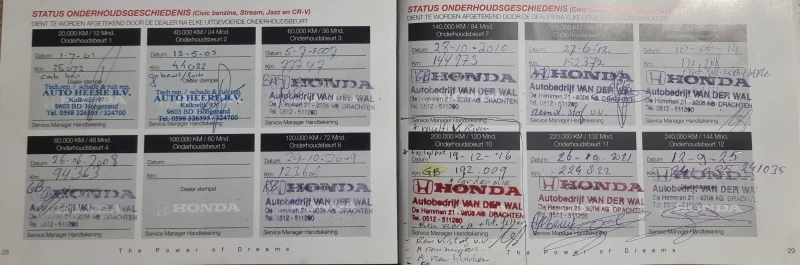 STATUS ONDERHOUDSGESCHIEDENIS (Civic benzine, Stream, Jazz en CR-V)
DIENT TE WORDEN AFGETEKEND DOOR DE DEALER NA ELKE UITGEVOERDE ONDERHOUDSBEURT
20.000 KM / 12 Mnd.
Onderhoudsbeurt 1
Datum:
Km:
Tech.rep. / schade & ruit rep.
AUTO HEERE B.V.
Kalkwijk 97
9603 BD Hoogezand
Tel. 0598 326595 / 324700
Service Manager Handtekening
40.000 KM / 24 Mnd.
Onderhoudsbeurt 2
Datum: 12-5-05
Km: 44022
Dealer stempel
Tech.rep. / schade & ruit rep.
AUTO HEERE B.V.
Kalkwijk 97
9603 BD Hoogezand
Tel. 0598 326595 / 324700
Service Manager Handtekening
60.000 KM / 36 Mnd.
Onderhoudsbeurt 3
Datum: 5-7-2007
Km: 77747
HONDA
Autobedrijf VAN DER WAL
De Hemmen 21 - 9206 AG DRACHTEN
Tel. 0512 - 511200
Service Manager Handtekening
80.000 KM / 48 Mnd.
Onderhoudsbeurt 4
Datum: 26-06-2008
Km: 94363
GB
HONDA
Autobedrijf VAN DER WAL
De Hemmen 21 - 9206 AG DRACHTEN
Tel. 0512 - 511200
Service Manager Handtekening
100.000 KM / 60 Mnd.
Onderhoudsbeurt 5
Datum:
Km:
Dealer stempel
HONDA
Service Manager Handtekening
120.000 KM / 72 Mnd.
Onderhoudsbeurt 6
Datum: 24-10-2009
Km:
HONDA
Autobedrijf VAN DER WAL
De Hemmen 21 - 9206 AG DRACHTEN
Tel. 0512 - 511200
Service Manager Handtekening
28
The Power of Dreams
STATUS ONDERHOUDSGESCHIEDENIS
DIENT TE WORDEN AFGETEKEND DOOR DE DEALER NA ELKE UITGEVOERDE
140.000 KM / 84 Mnd.
Onderhoudsbeurt 7
Datum: 28-10-2010
Km: 144973
HONDA
Autobedrijf VAN DER WAL
De Hemmen 21 - 9206 AG DRACHTEN
Tel. 0512 - 511200
Service Manager Handtekening
Datum: 27-6-12
Km: 152372
HONDA
Autobedrijf VAN DER WAL
De Hemmen 21 - 9206 AG DRACHTEN
Tel. 0512 - 511200
Service Manager Handtekening
Datum:
Km:
HONDA
Autobedrijf VAN DER WAL
De Hemmen 21 - 9206 AG DRACHTEN
Tel. 0512 - 511200
Service Manager Handtekening
200.000 KM / 120 Mnd.
Onderhoudsbeurt 10
19-12-'16
Km: GB 192.009
HONDA
Autobedrijf VAN DER WAL
De Hemmen 21 - 9206 AG DRACHTEN
Tel. 0512 - 511200
Service Manager Handtekening
220.000 KM / 132 Mnd.
Onderhoudsbeurt 11
Datum: 26-10-2021
Km: 224822
HONDA
Autobedrijf VAN DER WAL
De Hemmen 21 - 9206 AG DRACHTEN
Tel. 0512 - 511200
Service Manager Handtekening
240.000 KM / 144 Mnd.
Onderhoudsbeurt 12
Datum: 12-9-25
Km: 241035
HONDA
Autobedrijf VAN DER WAL
De Hemmen 21 - 9206 AG DRACHTEN
Tel. 0512 - 511200
Service Manager Handtekening
The Power of Dreams
29